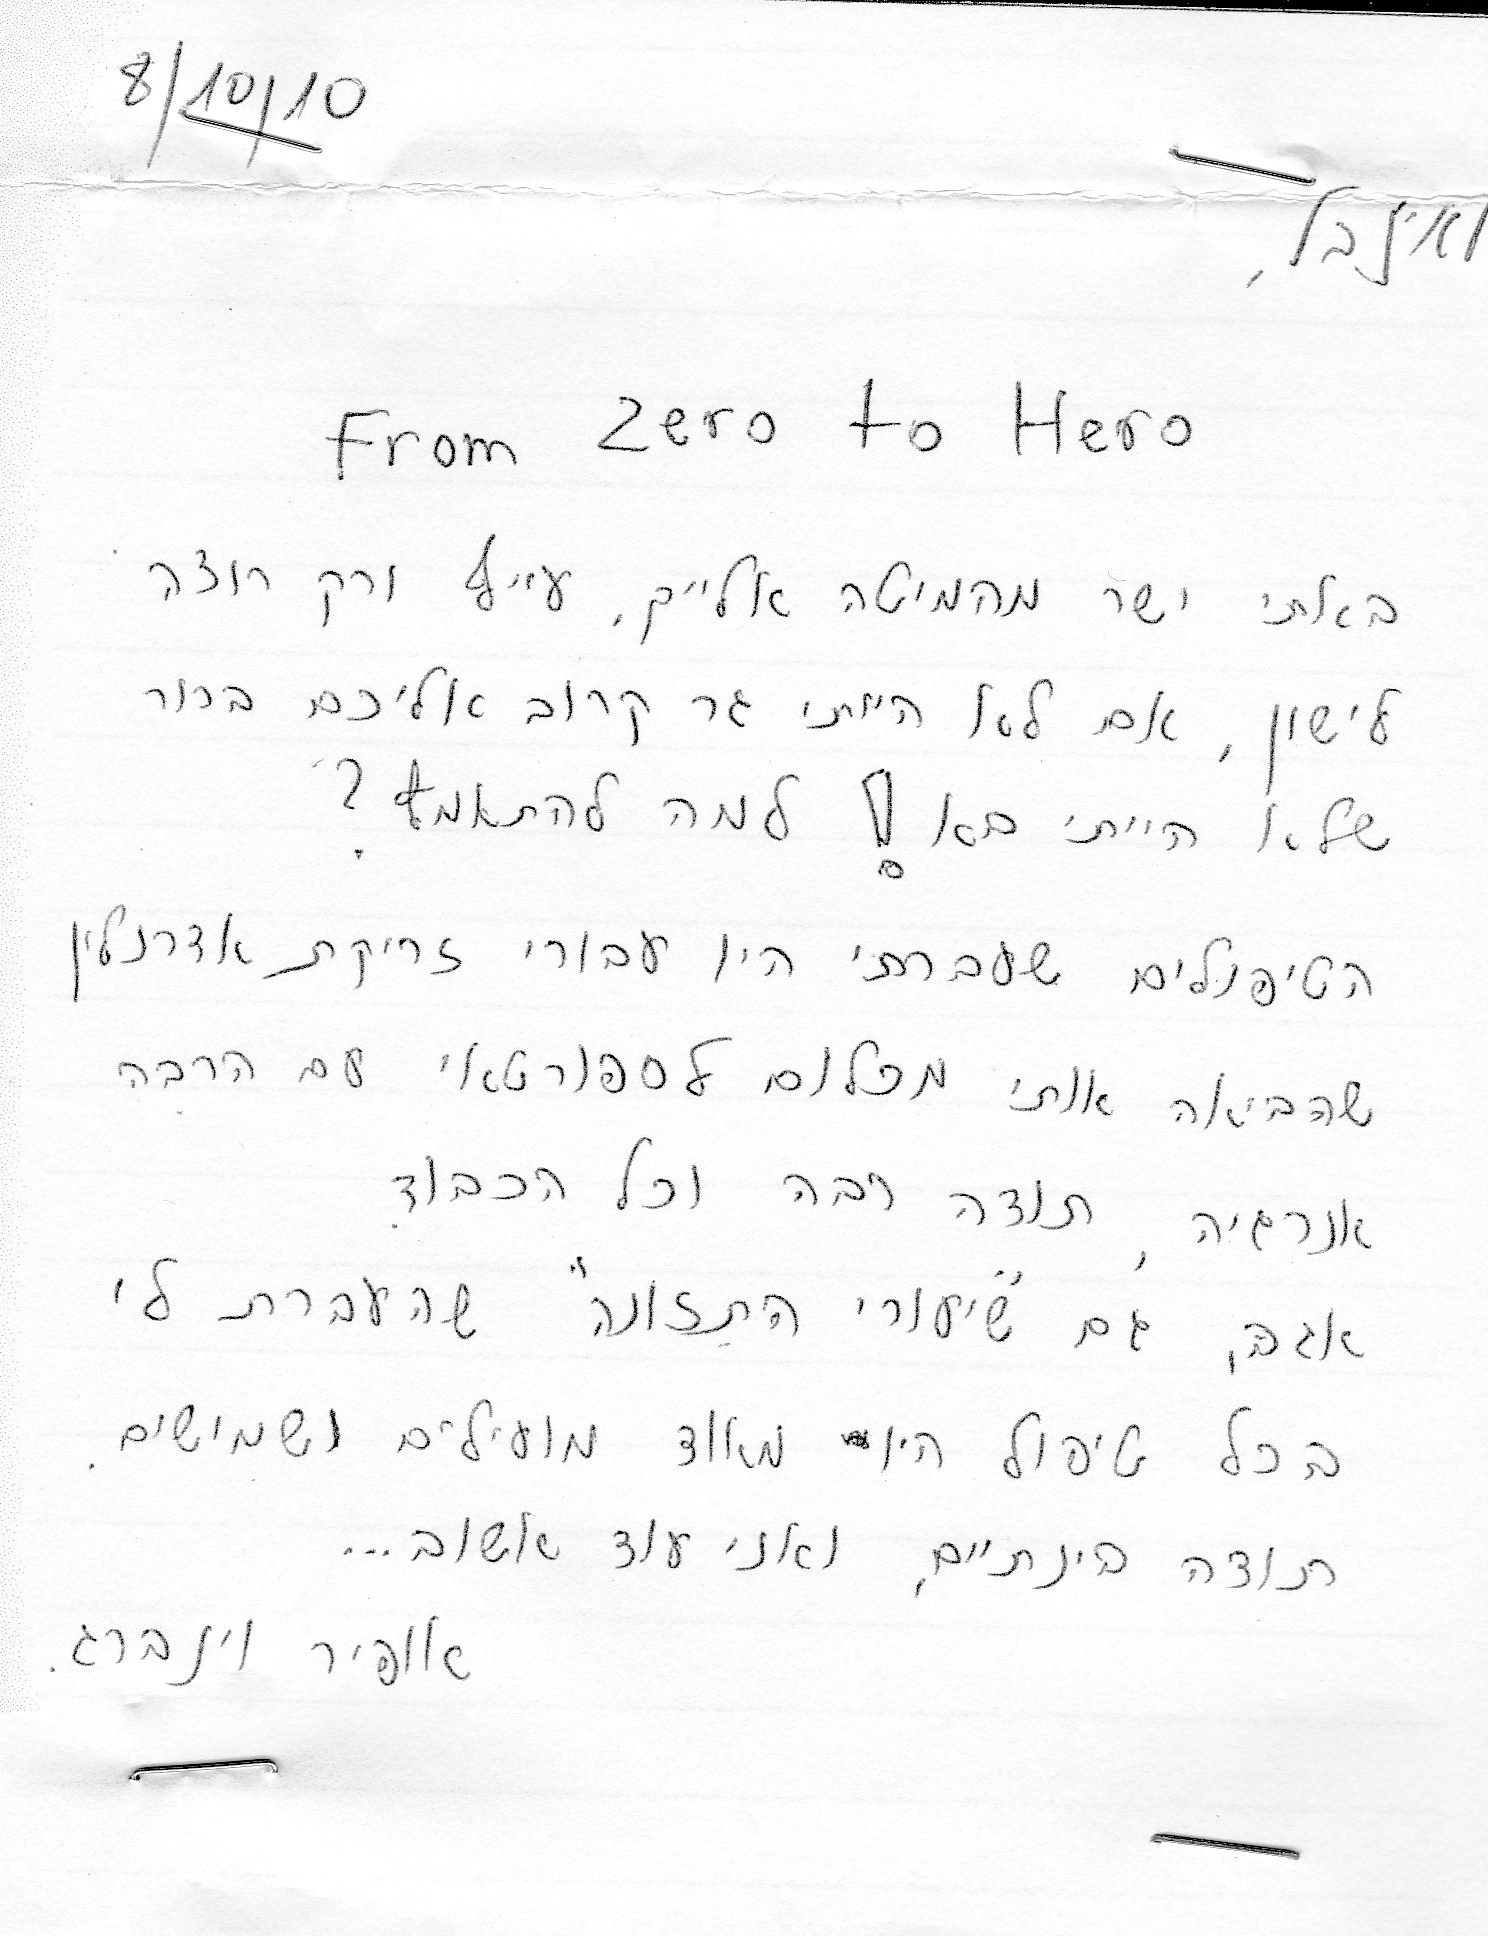 8/10/10
ואיזבל,
From Zero to Hero
באתי ישר מהמיטה אלייך, עייף ורק רוצה
לישון, אם לא הייתי גר קרוב אליכם ברור
שלא הייתי בא! למה להתאמץ?
הטיפולים שעברתי היו עבורי זריקת אדרנלין
שהביאה אותי מכלום לספורטאי עם הרבה
אנרגיה, תודה רבה וכל הכבוד.
אגב, גם "שיעורי התזונה" שהעברת לי
בכל טיפול היו מאוד מועילים ושמישים.
תודה בינתיים, ואני עוד אשוב...
אופיר וינברג.